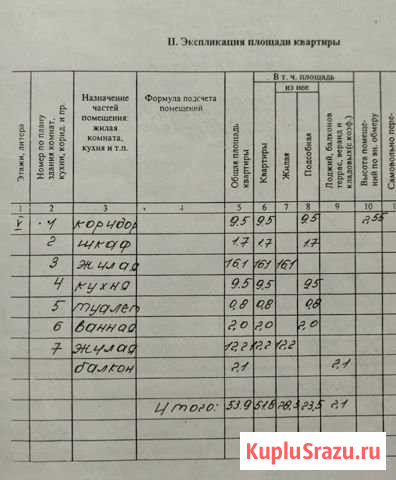 II. Экспликация площади квартиры
Этажи, литера
Номер по плану здания комнат, кухни, корид. и пр.
Назначение частей помещения: жилая комната, кухня и т.п.
Формула подсчета помещений
Общая площадь квартиры
В т. ч. площадь
из нее
Квартиры
Жилая
Подсобная
Лоджий, балконов террас, веранд и кладовых (с коэф.)
Высота помещений по вн. обмеру
Самовольно пере-
1 2 3 4 5 6 7 8 9 10 11
V 1 коридор 9.5 9.5 9.5 2,55
2 шкаф 1.7 1.7 1.7
3 жилая 16.1 16.1 16.1
4 кухня 9.5 9.5 9.5
5 туалет 0,8 0,8 0,8
6 ванная 2,0 2,0 2,0
7 жилая 12,2 12,2 12,2
балкон 2,1 2,1
Итого: 53.9 51.8 28,3 23,5 2,1
KupluSrazu.ru